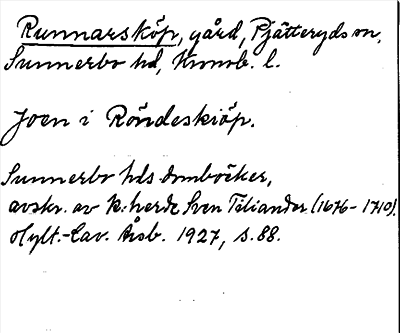 Runnarsköp, gård, Pjätteryds sn,
Sunnerbo hd, Kronob. l.
Joen i Röndeskiöp.
Sunnerbo hds domböcker,
avskr. av k:herde Sven Tiliander (1676-1710).
Hylt.-Cav. Årsb. 1927, s. 88.